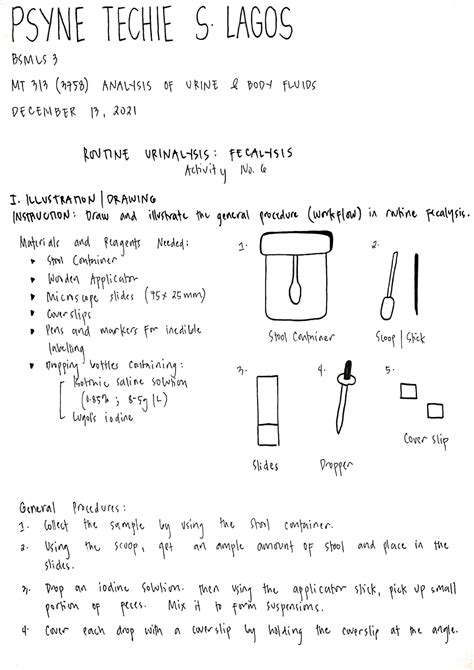 PSYNE TECHIE S. LAGOS
BSMLS 3
MT 313 (3758) ANALYSIS OF URINE & BODY FLUIDS
DECEMBER 13, 2021
ROUTINE URINALYSIS: FECALYSIS
Activity No. 6
I. ILLUSTRATION | DRAWING
INSTRUCTION: Draw and illustrate the general procedure (workflow) in routine fecalysis.
Materials and Reagents Needed:
▸ Stool Container
▸ Wooden Applicator
▸ Microscope slides (75x25mm)
▸ Coverslips
▸ Pens and markers for inedible
labelling
▸ Dropping bottles containing:
Isotonic saline solution
(0.85%; 8.5g/L)
Lugol's iodine
1.
Stool Container
2.
Scoop | Stick
3.
Slides
4.
Dropper
5.
Cover slip
General Procedures:
1. Collect the sample by using the stool container.
2. Using the scoop, get an ample amount of stool and place in the
slides.
3. Drop an iodine solution. Then using the applicator stick, pick up small
portion of feces. Mix it to form suspensions.
4. Cover each drop with a coverslip by holding the coverslip at the angle.